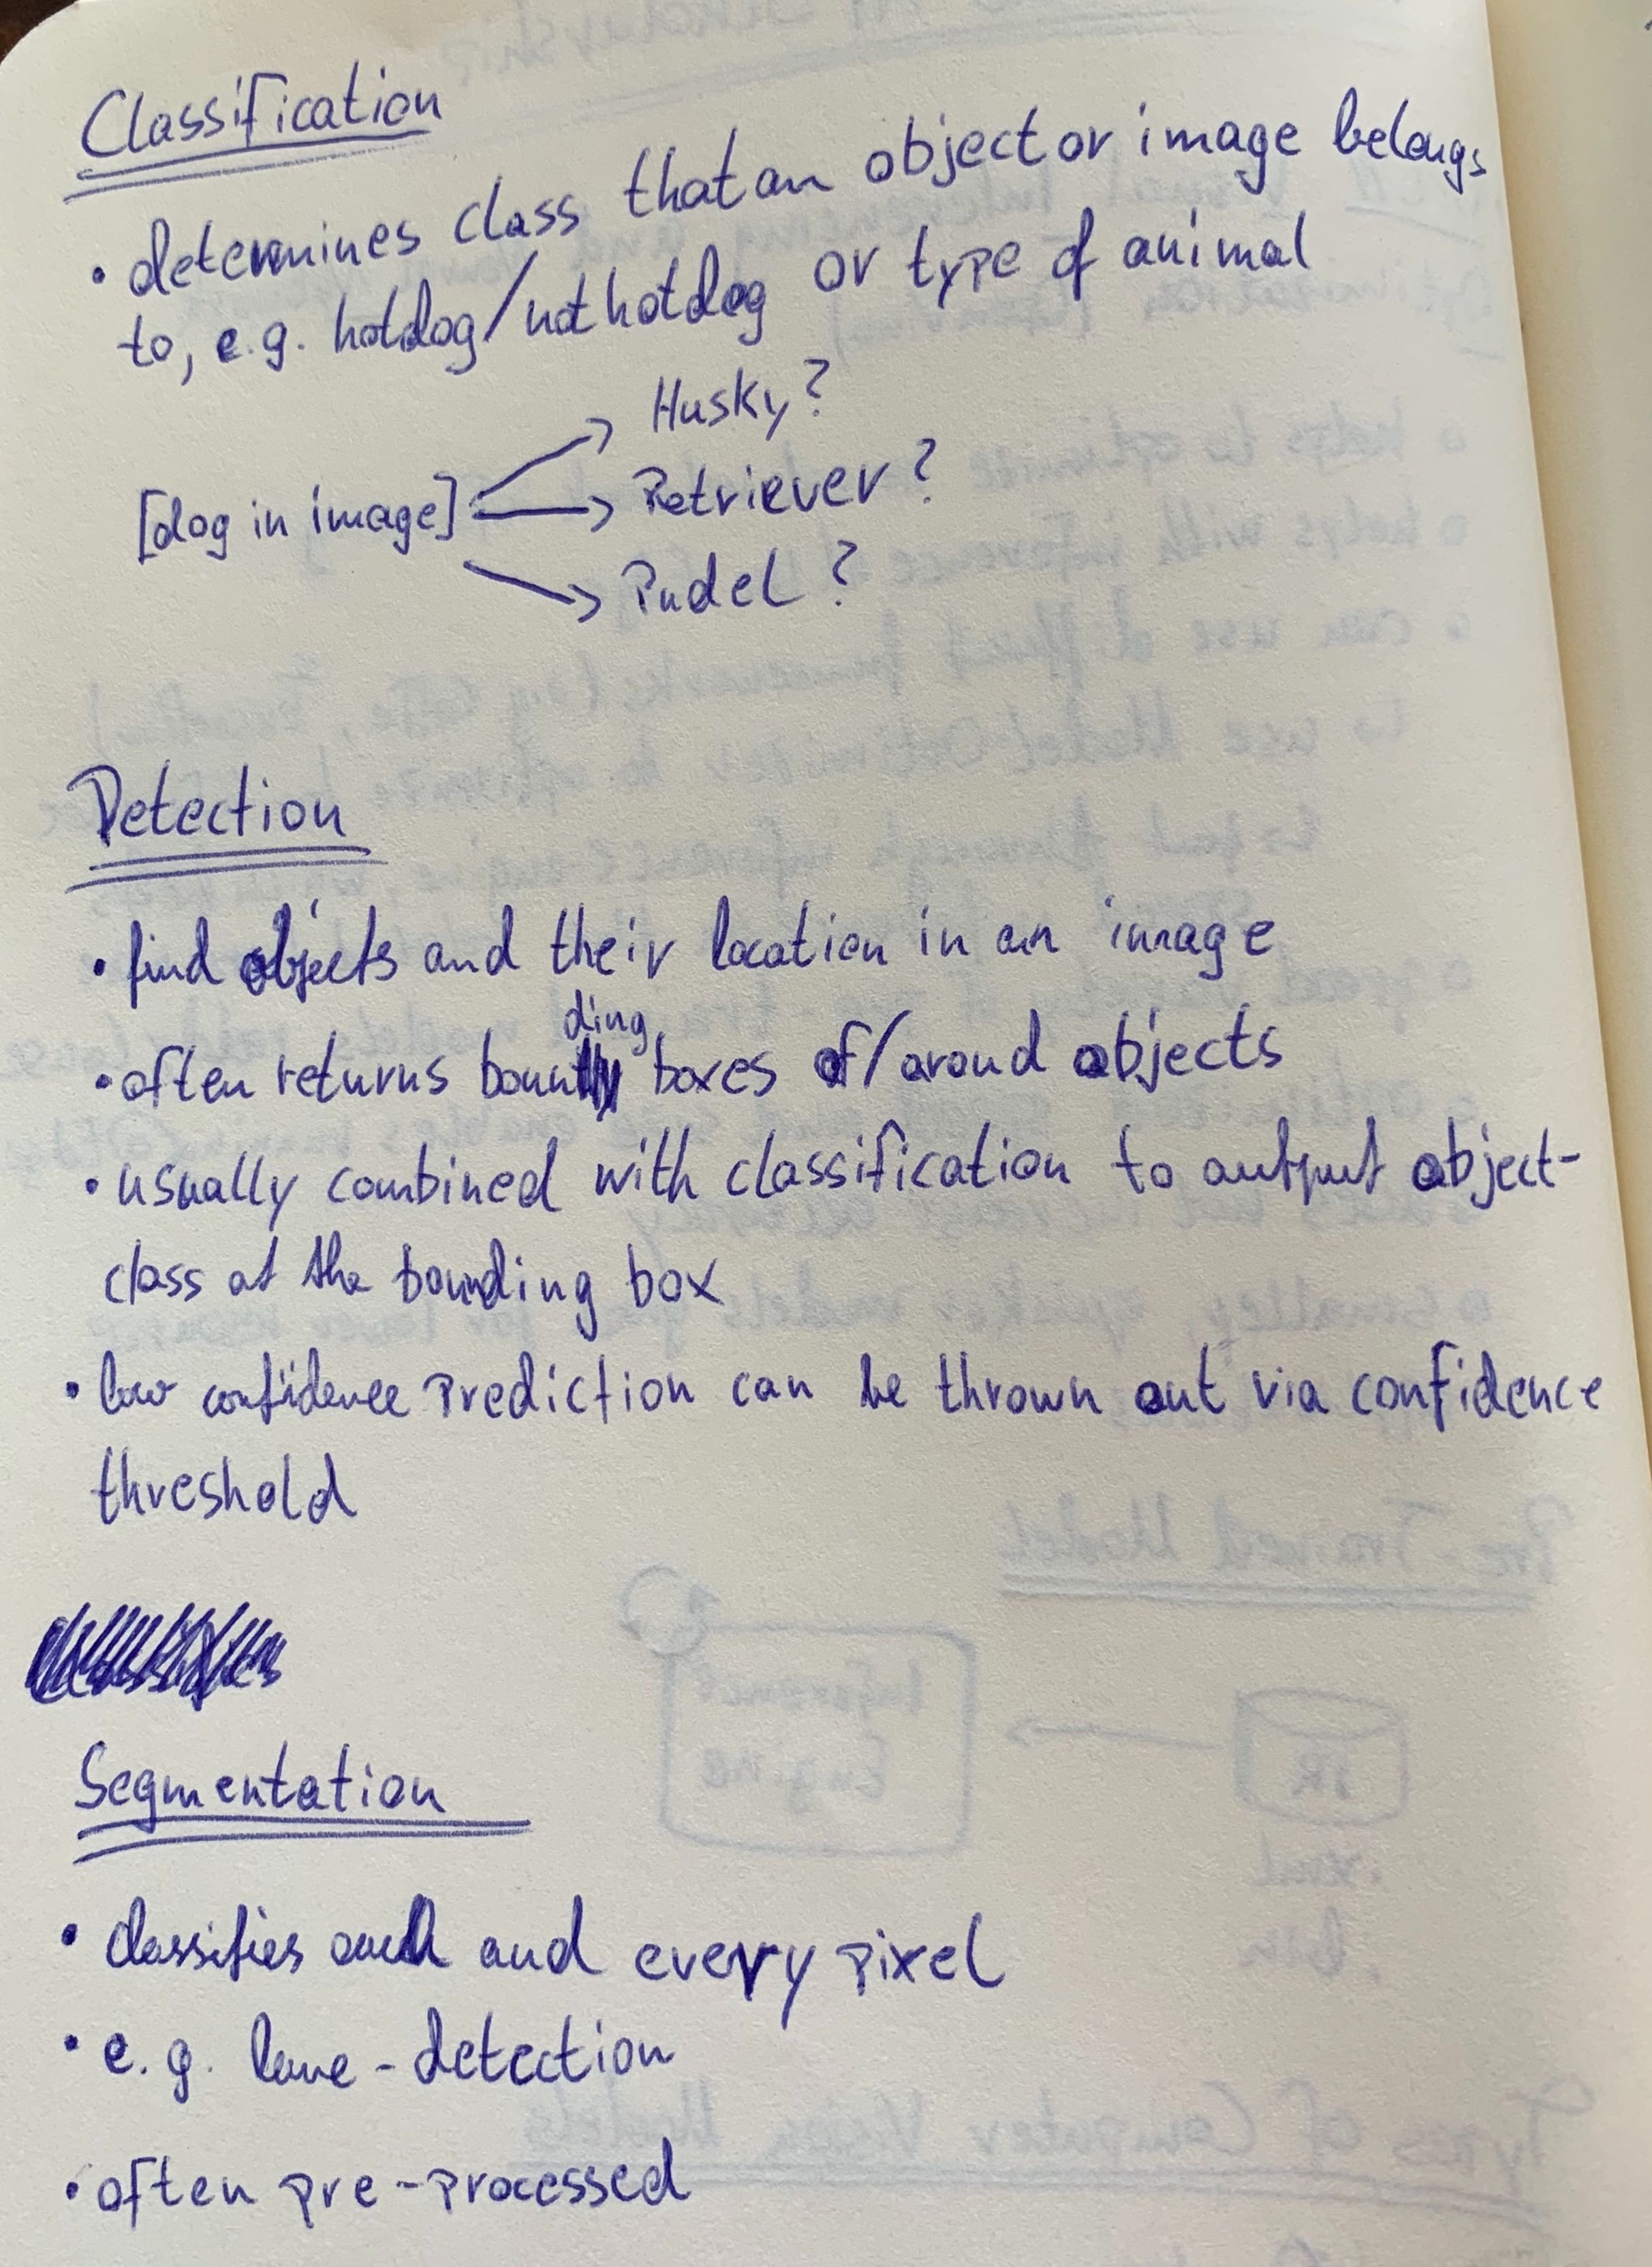 Classification
• determines class that an object or image belongs
to, e.g. hotdog/not hotdog or type of animal
Husky?
[dog in image] Retriever?
Pudel?
Detection
• find objects and their location in an image
• often returns bounding boxes of/aroud objects
• usually combined with classification to output object-
class at the bounding box
• low confidence prediction can be thrown out via confidence
threshold
Segmentation
• classifies each and every pixel
• e.g. lane-detection
• often pre-processed
Pre-Trained Model
Inference
Engine
IR
.xml
.bin
Types of Computer Vision Models